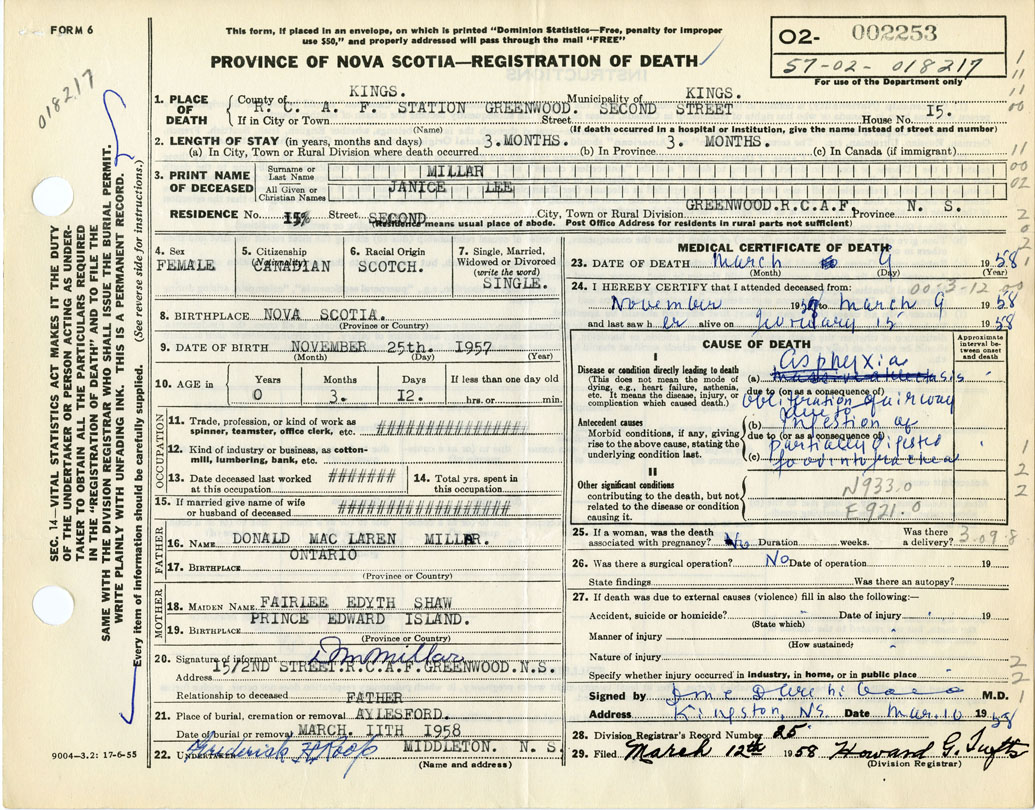 FORM 6
This form, if placed in an envelope, on which is printed "Dominion Statistics—Free, penalty for improper
use $50," and properly addressed will pass through the mail "FREE"
O2- 002253
57-02- 018217
For use of the Department only
PROVINCE OF NOVA SCOTIA—REGISTRATION OF DEATH
018217
1. PLACE OF DEATH
County of KINGS. Municipality of KINGS.
R. C. A. F. STATION GREENWOOD. SECOND STREET 15.
If in City or Town Street House No.
(Name) (If death occurred in a hospital or institution, give the name instead of street and number)
2. LENGTH OF STAY (in years, months and days)
(a) In City, Town or Rural Division where death occurred 3.MONTHS. (b) In Province 3. MONTHS. (c) In Canada (if immigrant)
3. PRINT NAME OF DECEASED
Surname or Last Name MILLAR
All Given or Christian Names JANICE LEE
RESIDENCE No. 15 Street SECOND City, Town or Rural Division GREENWOOD.R.C.A.F. Province N. S.
(Residence means usual place of abode. Post Office Address for residents in rural parts not sufficient)
4. Sex FEMALE
5. Citizenship (Nationality) CANADIAN
6. Racial Origin SCOTCH.
7. Single, Married, Widowed or Divorced (write the word) SINGLE.
8. BIRTHPLACE NOVA SCOTIA.
(Province or Country)
9. DATE OF BIRTH NOVEMBER 25th. 1957
(Month) (Day) (Year)
10. AGE in Years Months Days If less than one day old
0 3. I2. hrs. or min.
OCCUPATION
11. Trade, profession, or kind of work as
spinner, teamster, office clerk, etc. ##################
12. Kind of industry or business, as cotton-
mill, lumbering, bank, etc.
13. Date deceased last worked
at this occupation ####### 14. Total yrs. spent in
this occupation
15. If married give name of wife
or husband of deceased ##################
FATHER
16. NAME DONALD MAC LAREN MILLAR.
ONTARIO
17. BIRTHPLACE
(Province or Country)
MOTHER
18. MAIDEN NAME FAIRLEE EDYTH SHAW
19. BIRTHPLACE PRINCE EDWARD ISLAND.
(Province or Country)
20. Signature of informant DM Millar
Address 15/2ND STREET.R.C.A.F.GREENWOOD.N.S.
Relationship to deceased FATHER
21. Place of burial, cremation or removal AYLESFORD.
Date of burial or removal MARCH. IITH 1958
22. UNDERTAKER Frederick H Roop MIDDLETON. N. S.
(Name and address)
9004—3.2: 17-6-55
MEDICAL CERTIFICATE OF DEATH
23. DATE OF DEATH March 9 1958
(Month) (Day) (Year)
24. I HEREBY CERTIFY that I attended deceased from: 00-3-12 00
November 195 to march 9 1958
and last saw h er alive on 15 1958
CAUSE OF DEATH
Approximate interval between onset and death
I
Disease or condition directly leading to death
(This does not mean the mode of
dying, e.g., heart failure, asthenia,
etc. It means the disease, injury, or
complication which caused death.)
Asphyxia
(a)
due to (or as a consequence of)
obliteration of airway
due to
Antecedent causes
Morbid conditions, if any, giving
rise to the above cause, stating the
underlying condition last.
(b) Ingestion of
due to (or as a consequence of)
partially digested
(c) food into trachea
II
Other significant conditions
contributing to the death, but not
related to the disease or condition
causing it.
N933.0
F921.0
25. If a woman, was the death
associated with pregnancy? No Duration weeks. Was there
a delivery? 3-09-8
26. Was there a surgical operation? No Date of operation 19
State findings Was there an autopsy?
27. If death was due to external causes (violence) fill in also the following:—
Accident, suicide or homicide? Date of injury 19
(State which)
Manner of injury
(How sustained)
Nature of injury
Specify whether injury occurred in industry, in home, or in public place
Signed by M.D.
Address Kingston, NS. Date Mar. 10 1958
28. Division Registrar's Record Number 25
29. Filed March 12th 1958 Howard G. Tufts
(Division Registrar)
SEC. 14—VITAL STATISTICS ACT MAKES IT THE DUTY
OF THE UNDERTAKER OR PERSON ACTING AS UNDER-
TAKER TO OBTAIN ALL THE PARTICULARS REQUIRED
IN THE "REGISTRATION OF DEATH" AND TO FILE THE
SAME WITH THE DIVISION REGISTRAR WHO SHALL ISSUE THE BURIAL PERMIT.
WRITE PLAINLY WITH UNFADING INK. THIS IS A PERMANENT RECORD.
Every item of information should be carefully supplied. (See reverse side for instructions.)